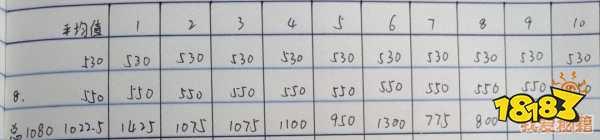 平均值 1 2 3 4 5 6 7 8 9 10
530 530 530 530 530 530 530 530 530 530 530
8. 550 550 550 550 550 550 550 550 550 550
总1080 1022.5 1425 1075 1075 1100 950 1300 775 800
18183
我爱秘籍